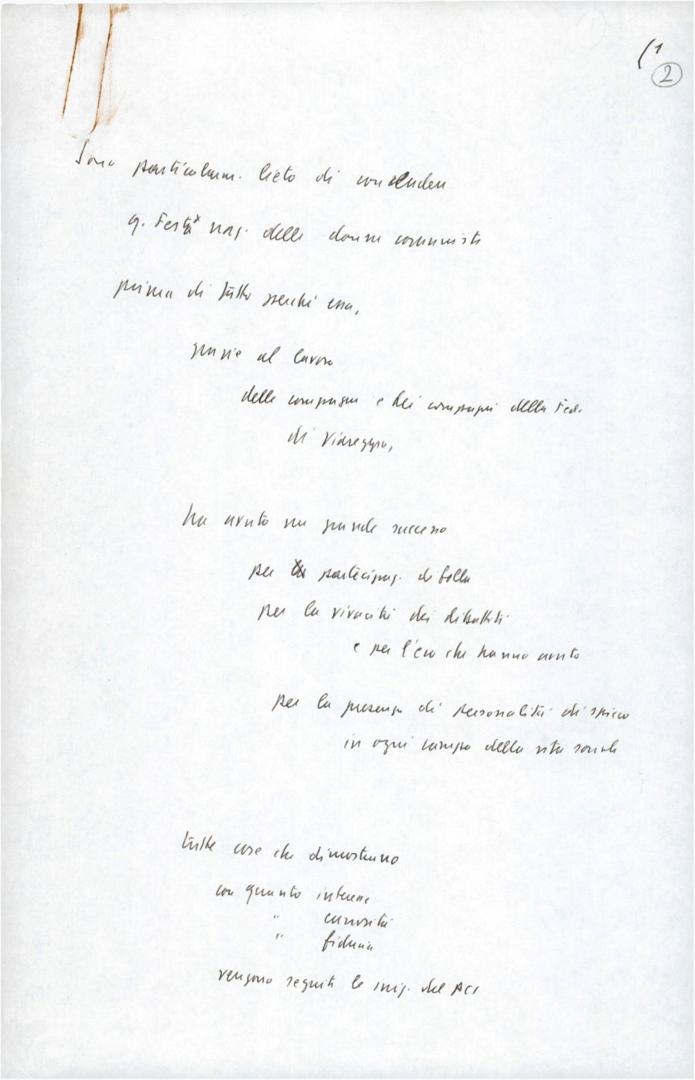 (1
2
Sono particolarm. lieto di concludere
q. Festa naz. delle donne comuniste
prima di tutto perché essa,
grazie al lavoro
delle compagne e dei compagni della Fed.
di Viareggio,
ha avuto un grande successo
per partecipaz. di folla
per la vivacità dei dibattiti
e per l'eco che hanno avuto
per la presenza di personalità di spicco
in ogni campo della vita sociale
tutte cose che dimostrano
con quanto interesse
" curiosità
" fiducia
vengono seguite le iniz. del PCI